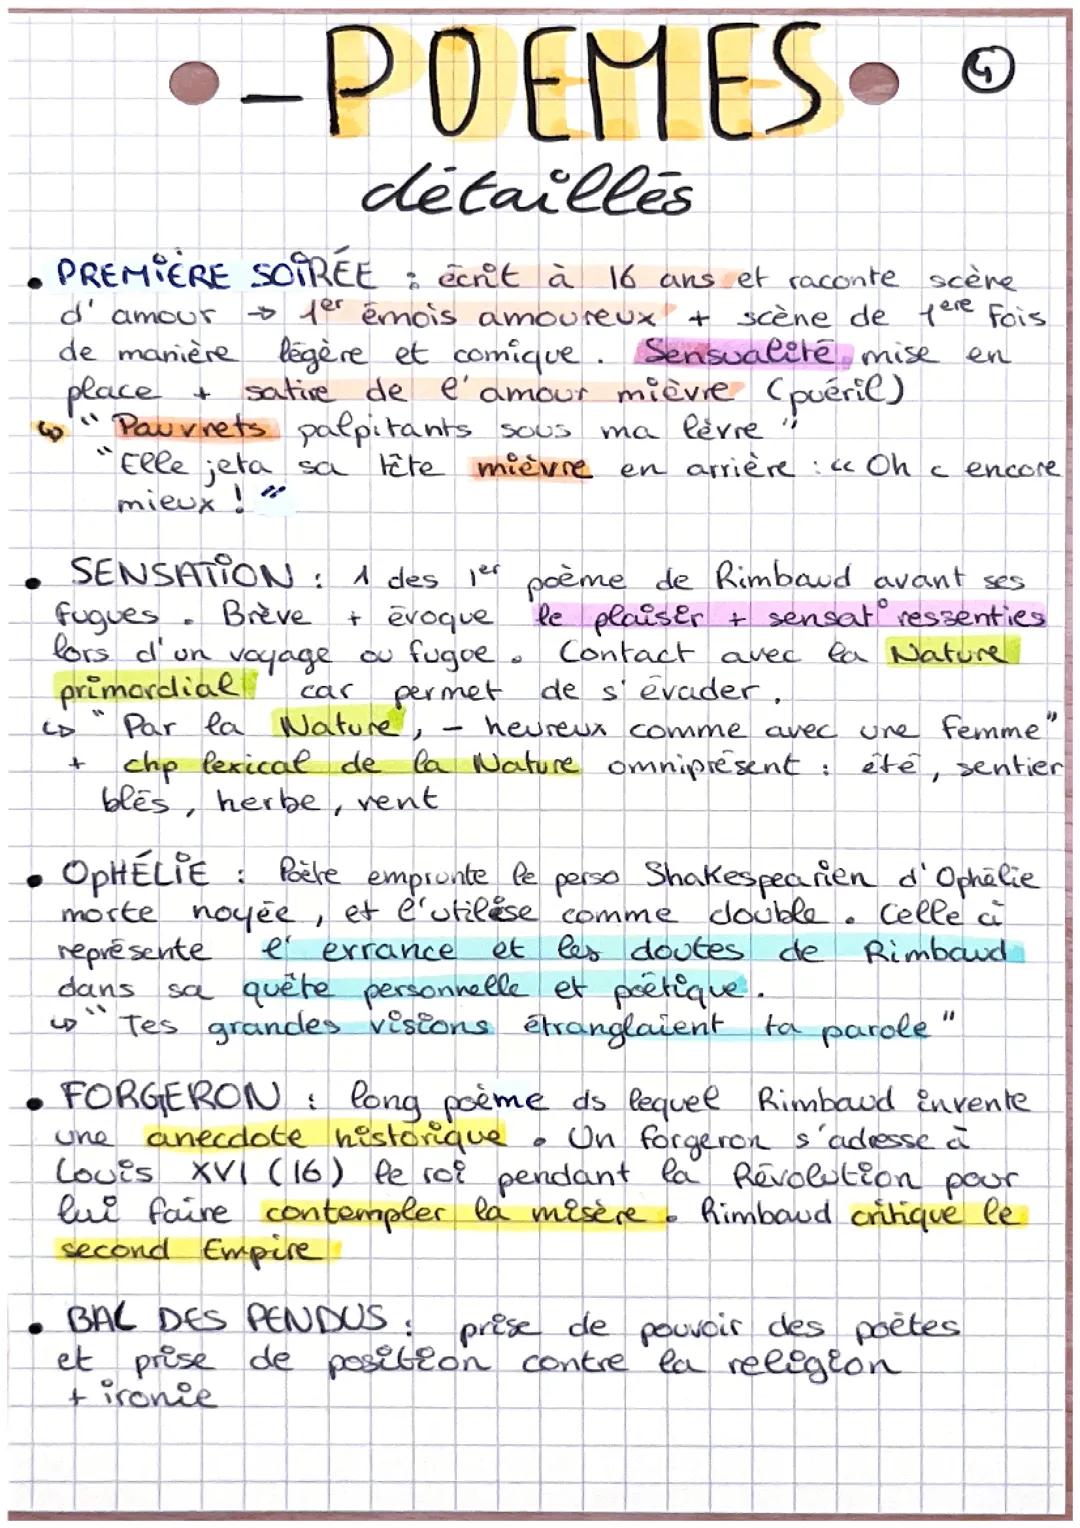 - POEMES
4
détaillés
• PREMIÈRE SOIRÉE : écrit à 16 ans et raconte scène
d'amour → 1er émois amoureux + scène de 1ere fois
de manière légère et comique. Sensualité mise en
place + satire de l'amour mièvre (puéril)
↳ "Pauvrets palpitants sous ma lèvre"
"Elle jeta sa tête mièvre en arrière : « Oh c encore
mieux ! "
• SENSATION : 1 des 1er poème de Rimbaud avant ses
fugues. Brève + évoque le plaisir + sensat° ressenties
lors d'un voyage ou fugue. Contact avec la Nature
primordial car permet de s'évader.
↳ "Par la Nature, - heureux comme avec une femme"
+ chp lexical de la Nature omniprésent : été, sentier
blés, herbe, vent
• OPHÉLIE : Poète emprunte le perso Shakespearien d'Ophélie
morte noyée, et l'utilise comme double. Celle ci
représente l'errance et les doutes de Rimbaud
dans sa quête personnelle et poétique.
↳ "Tes grandes visions étranglaient ta parole"
• FORGERON : long poème ds lequel Rimbaud invente
une anecdote historique. Un forgeron s'adresse à
Louis XVI (16) le roi pendant la Révolution pour
lui faire contempler la misère. Rimbaud critique le
second Empire
• BAL DES PENDUS : prise de pouvoir des poètes
et prise de position contre la religion
+ ironie